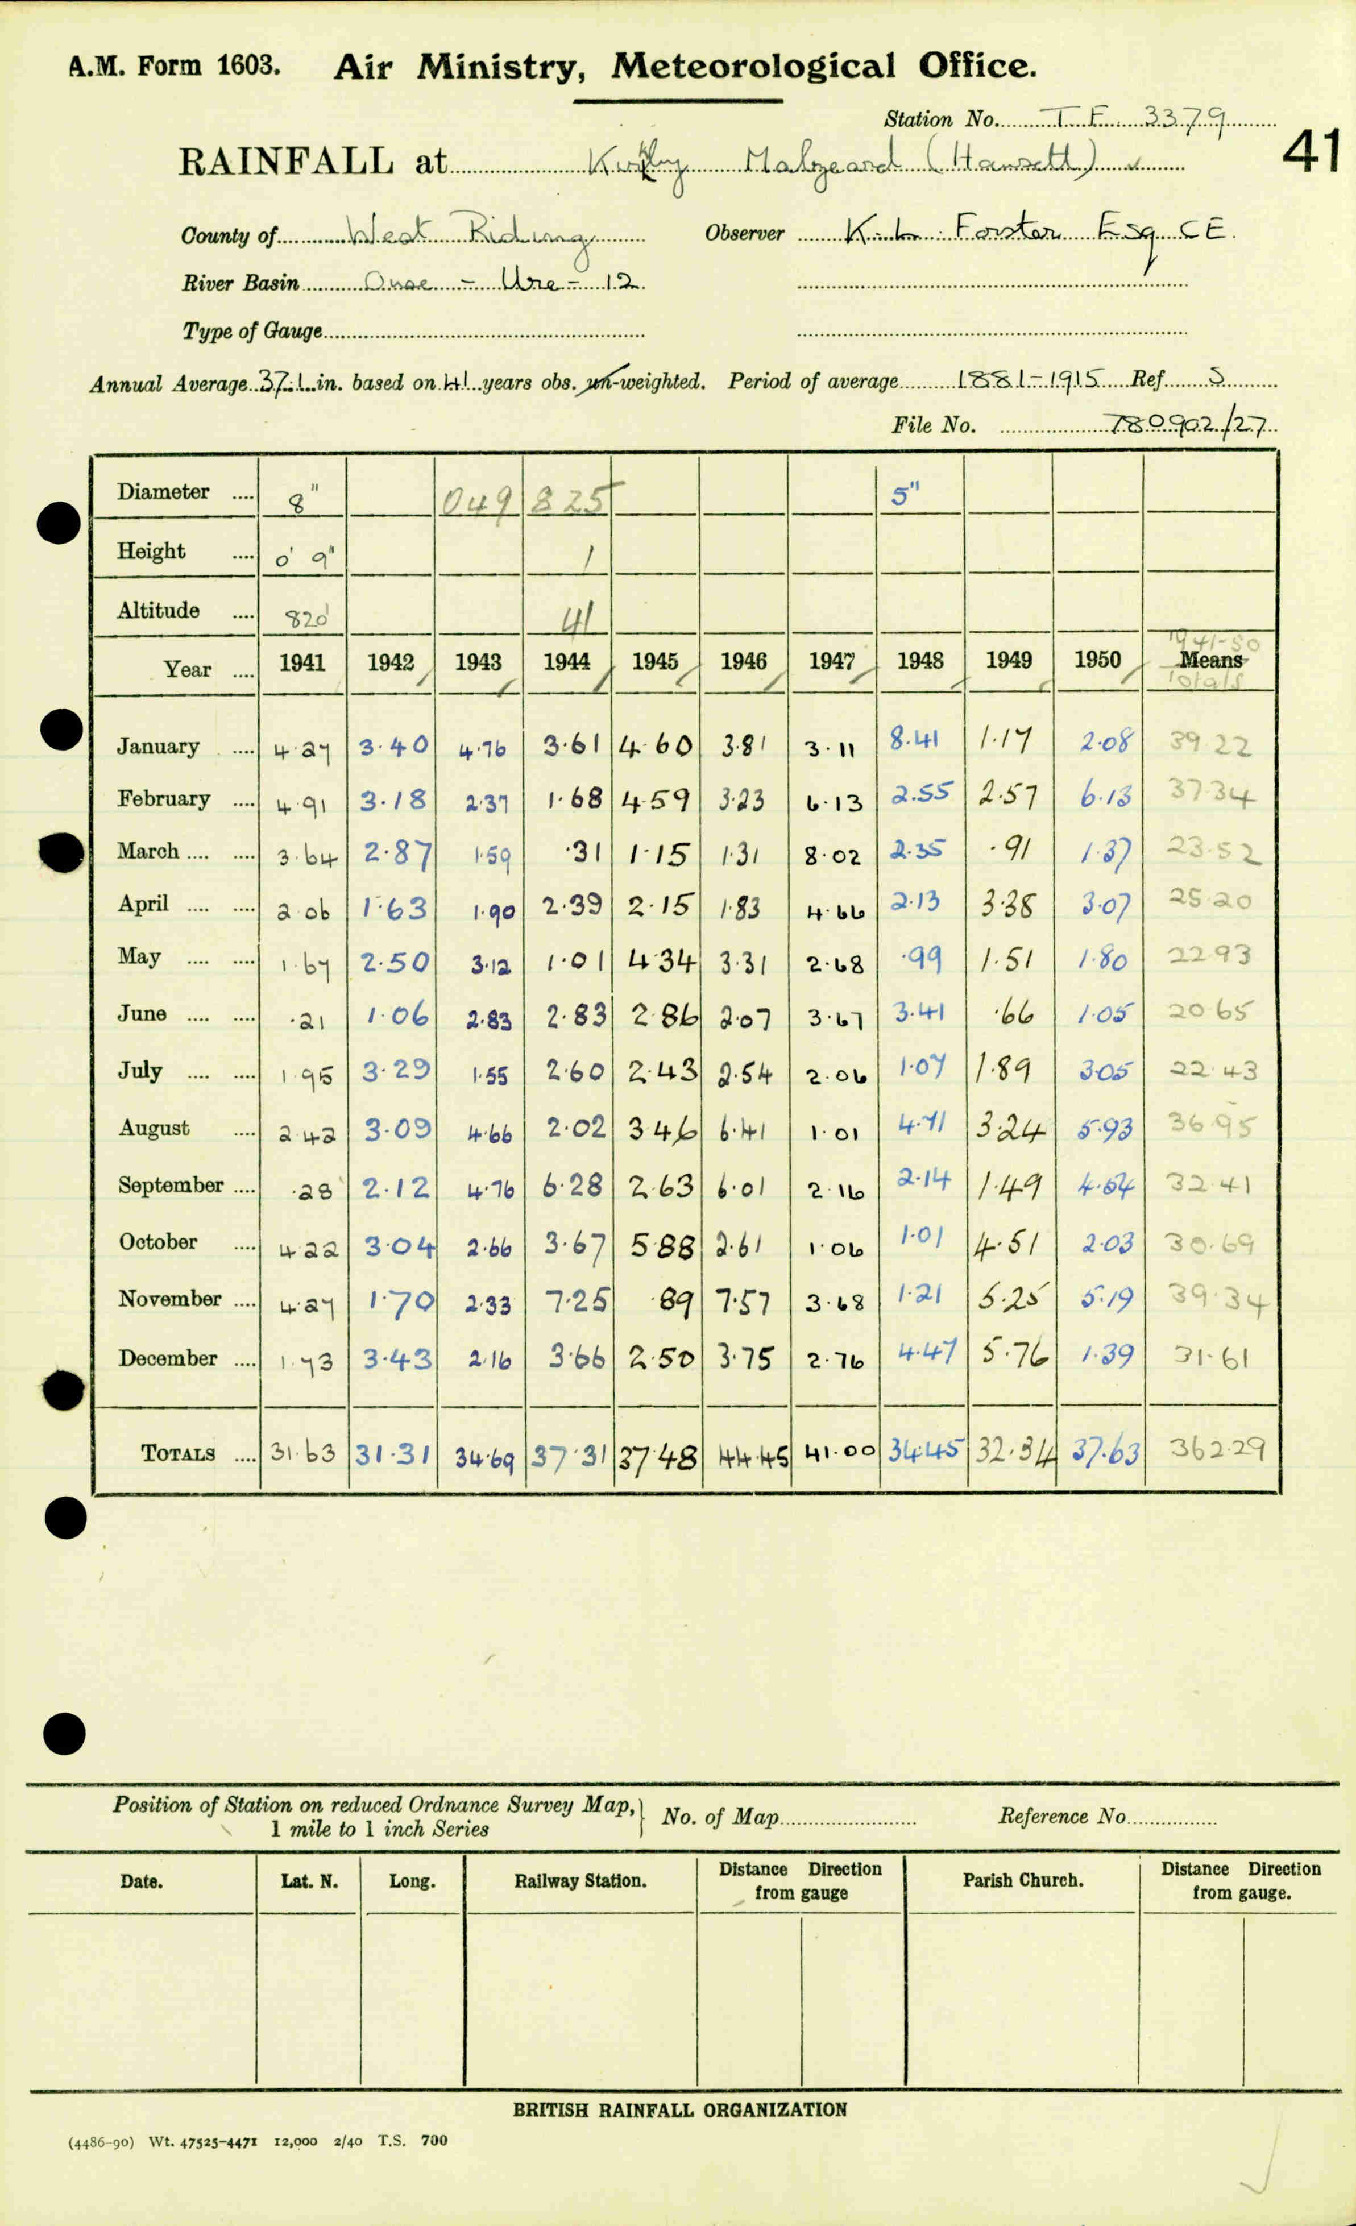 A.M. Form 1603. Air Ministry, Meteorological Office.
Station No. T.F. 3379
41
RAINFALL at Kirkby Malzeard (Hawsett) ✓
County of West Riding Observer K.L. Forster Esq CE.
River Basin Ouse - Ure - 12
Type of Gauge
Annual Average 37.1 in. based on 41 years obs. un-weighted. Period of average 1881-1915 Ref. S
File No. 780902/27
Diameter .... 8" 049 825 5"
Height .... 0' 9" 1
Altitude .... 820' 41
1941-50
Year .... 1941 1942 1943 1944 1945 1946 1947 1948 1949 1950 Means
Totals
January .... 4.27 3.40 4.76 3.61 4.60 3.81 3.11 8.41 1.17 2.08 39.22
February .... 4.91 3.18 2.37 1.68 4.59 3.23 6.13 2.55 2.57 6.13 37.34
March .... .... 3.64 2.87 1.59 .31 1.15 1.31 8.02 2.35 .91 1.37 23.52
April .... .... 2.06 1.63 1.90 2.39 2.15 1.83 4.66 2.13 3.38 3.07 25.20
May .... .... 1.67 2.50 3.12 1.01 4.34 3.31 2.68 .99 1.51 1.80 22.93
June .... .... .21 1.06 2.83 2.83 2.86 2.07 3.67 3.41 .66 1.05 20.65
July .... .... 1.95 3.29 1.55 2.60 2.43 2.54 2.06 1.07 1.89 3.05 22.43
August .... 2.42 3.09 4.66 2.02 3.46 6.41 1.01 4.71 3.24 5.93 36.95
September .... .28 2.12 4.76 6.28 2.63 6.01 2.16 2.14 1.49 4.54 32.41
October .... 4.22 3.04 2.66 3.67 5.88 2.61 1.06 1.01 4.51 2.03 30.69
November .... 4.27 1.70 2.33 7.25 .89 7.57 3.68 1.21 5.25 5.19 39.34
December .... 1.73 3.43 2.16 3.66 2.50 3.75 2.76 4.47 5.76 1.39 31.61
TOTALS .... 31.63 31.31 34.69 37.31 37.48 44.45 41.00 34.45 32.34 37.63 362.29
Position of Station on reduced Ordnance Survey Map, } No. of Map Reference No
1 mile to 1 inch Series
Date. Lat. N. Long. Railway Station. Distance Direction from gauge Parish Church. Distance Direction from gauge.
BRITISH RAINFALL ORGANIZATION
(4486-90) Wt. 47525-4471 12,000 2/40 T.S. 700